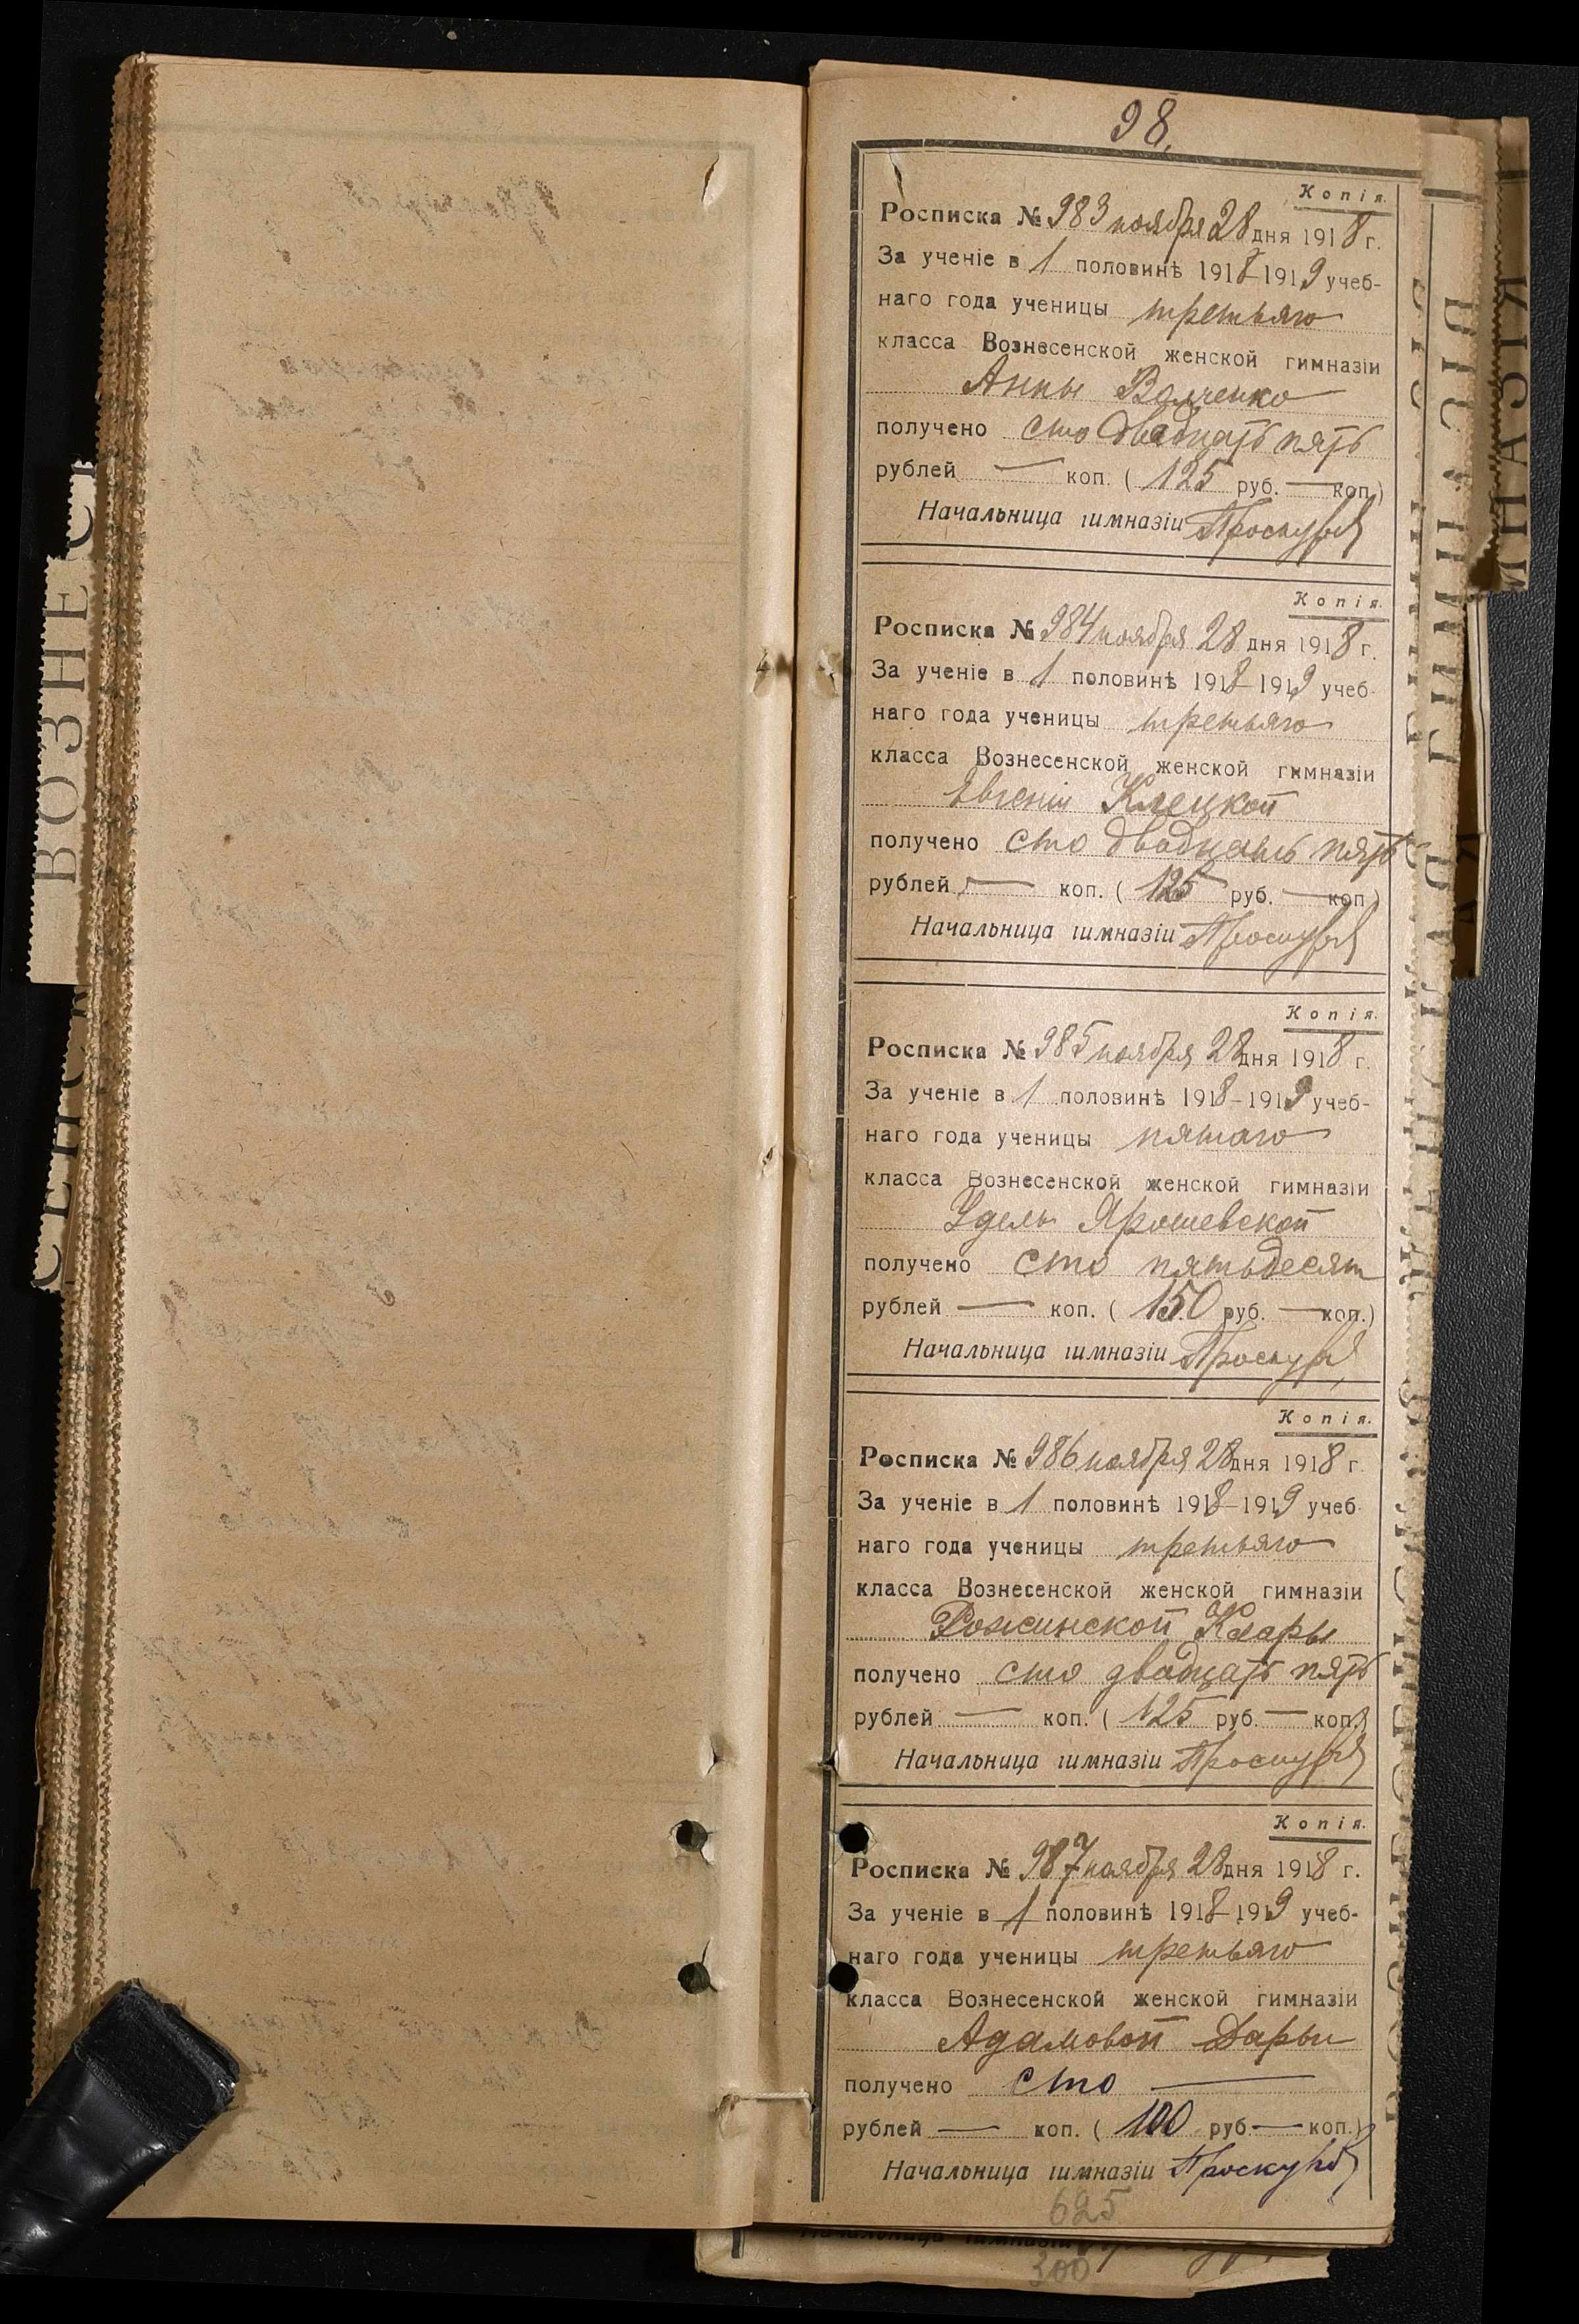 98.
Копія.
Росписка № 983 ноября 28 дня 1918 г.
За ученіе в 1 половинѣ 1918-1919 учеб-
наго года ученицы третьяго
класса Вознесенской женской гимназіи
Анны Волченко
получено сто двадцать пять
рублей — коп. ( 125 руб. — коп.)
Начальница гимназіи
Копія.
Росписка № 984 ноября 28 дня 1918 г.
За ученіе в 1 половинѣ 1918-1919 учеб-
наго года ученицы третьяго
класса Вознесенской женской гимназіи
Евгеніи Клецкой
получено сто двадцать пять
рублей — коп. ( 125 руб. — коп.)
Начальница гимназіи
Копія.
Росписка № 985 ноября 28 дня 1918 г.
За ученіе в 1 половинѣ 1918-1919 учеб-
наго года ученицы пятаго
класса Вознесенской женской гимназіи
Удель Ярошевской
получено сто пятьдесят
рублей — коп. ( 150 руб. — коп.)
Начальница гимназіи
Копія.
Росписка № 986 ноября 28 дня 1918 г.
За ученіе в 1 половинѣ 1918-1919 учеб-
наго года ученицы третьяго
класса Вознесенской женской гимназіи
Рожинской Клары
получено сто двадцать пять
рублей — коп. ( 125 руб. — коп.)
Начальница гимназіи
Копія.
Росписка № 987 ноября 28 дня 1918 г.
За ученіе в 1 половинѣ 1918-1919 учеб-
наго года ученицы третьяго
класса Вознесенской женской гимназіи
Адамовой Дарьи
получено сто —
рублей — коп. ( 100 руб. — коп.)
Начальница гимназіи
625
300
ВОЗНЕС